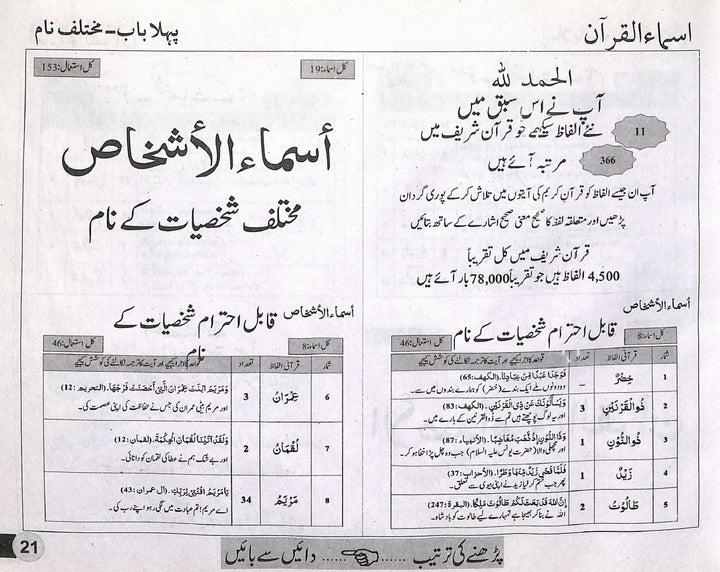 اسماء القرآن
پہلا باب - مختلف نام
الحمد للہ
آپ نے اس سبق میں
11 نئے الفاظ سیکھے جو قرآن شریف میں
366 مرتبہ آئے ہیں
آپ ان جیسے الفاظ کو قرآن کریم کی آیتوں میں تلاش کر کے پوری گردان
پڑھیں اور متعلقہ لفظ کا صحیح معنی صحیح اشارے کے ساتھ بتائیں
قرآن شریف میں کل تقریباً
4,500 الفاظ ہیں جو تقریباً 78,000 بار آئے ہیں
کل اسماء: 19
کل استعمال: 153
أسماء الأشخاص
مختلف شخصیات کے نام
أسماء الأشخاص
قابل احترام شخصیات کے نام
کل اسماء: 8
کل استعمال: 46
شمار قرآنی الفاظ تعداد قواعد کا اجرا کیجیے اور آیت کا ترجمہ نکالنے کی کوشش کیجیے
1 خِضْرٌ – فَوَجَدَا عَبْدًا مِّنْ عِبَادِنَا. (الکهف: 65)
وہ دونوں ملے ایک بندے (خضر) کو ہمارے بندوں میں سے۔
2 ذُوالْقَرْنَيْنِ 3 وَيَسْأَلُونَكَ عَنْ ذِي الْقَرْنَيْنِ. (الکهف: 83)
اور یہ لوگ پوچھتے ہیں تم سے ذوالقرنین کے بارے میں۔
3 ذُوالنُّوْنِ 1 وَذَا النُّونِ إِذْ ذَهَبَ مُغَاضِبًا. (الأنبیاء: 87)
اور مچھلی والا (حضرت یونس علیہ السلام) جب وہ چل پڑا خفا ہو کر۔
4 زَيْدٌ 1 فَلَمَّا قَضَى زَيْدٌ مِنْهَا وَطَرًا. (الأحزاب: 37)
پھر جب ختم کر لیا زید نے اپنی بیوی سے تعلق۔
5 طَالُوْتُ 2 إِنَّ اللَّهَ قَدْ بَعَثَ لَكُمْ طَالُوتَ مَلِكًا. (البقرة: 247)
اللہ نے بنا کر بھیجا ہے تمہارے لیے طالوت کو بادشاہ۔
أسماء الأشخاص
قابل احترام شخصیات کے نام
کل اسماء: 8
کل استعمال: 46
شمار قرآنی الفاظ تعداد قواعد کا اجرا کیجیے اور آیت کا ترجمہ نکالنے کی کوشش کیجیے
6 عِمْرَانُ 3 وَمَرْيَمَ ابْنَتَ عِمْرَانَ الَّتِي أَحْصَنَتْ فَرْجَهَا. (التحریم: 12)
اور مریم بیٹی عمران کی جس نے حفاظت کی اپنی عصمت کی۔
7 لُقْمَانُ 2 وَلَقَدْ آتَيْنَا لُقْمَانَ الْحِكْمَةَ. (لقمان: 12)
اور بے شک ہم نے عطا کی لقمان کو دانائی۔
8 مَرْيَمُ 34 يَا مَرْيَمُ اقْنُتِي لِرَبِّكِ. (آل عمران: 43)
اے مریم! تم عبادت میں لگی رہو اپنے رب کی۔
پڑھنے کی ترتیب ...... دائیں سے بائیں
21